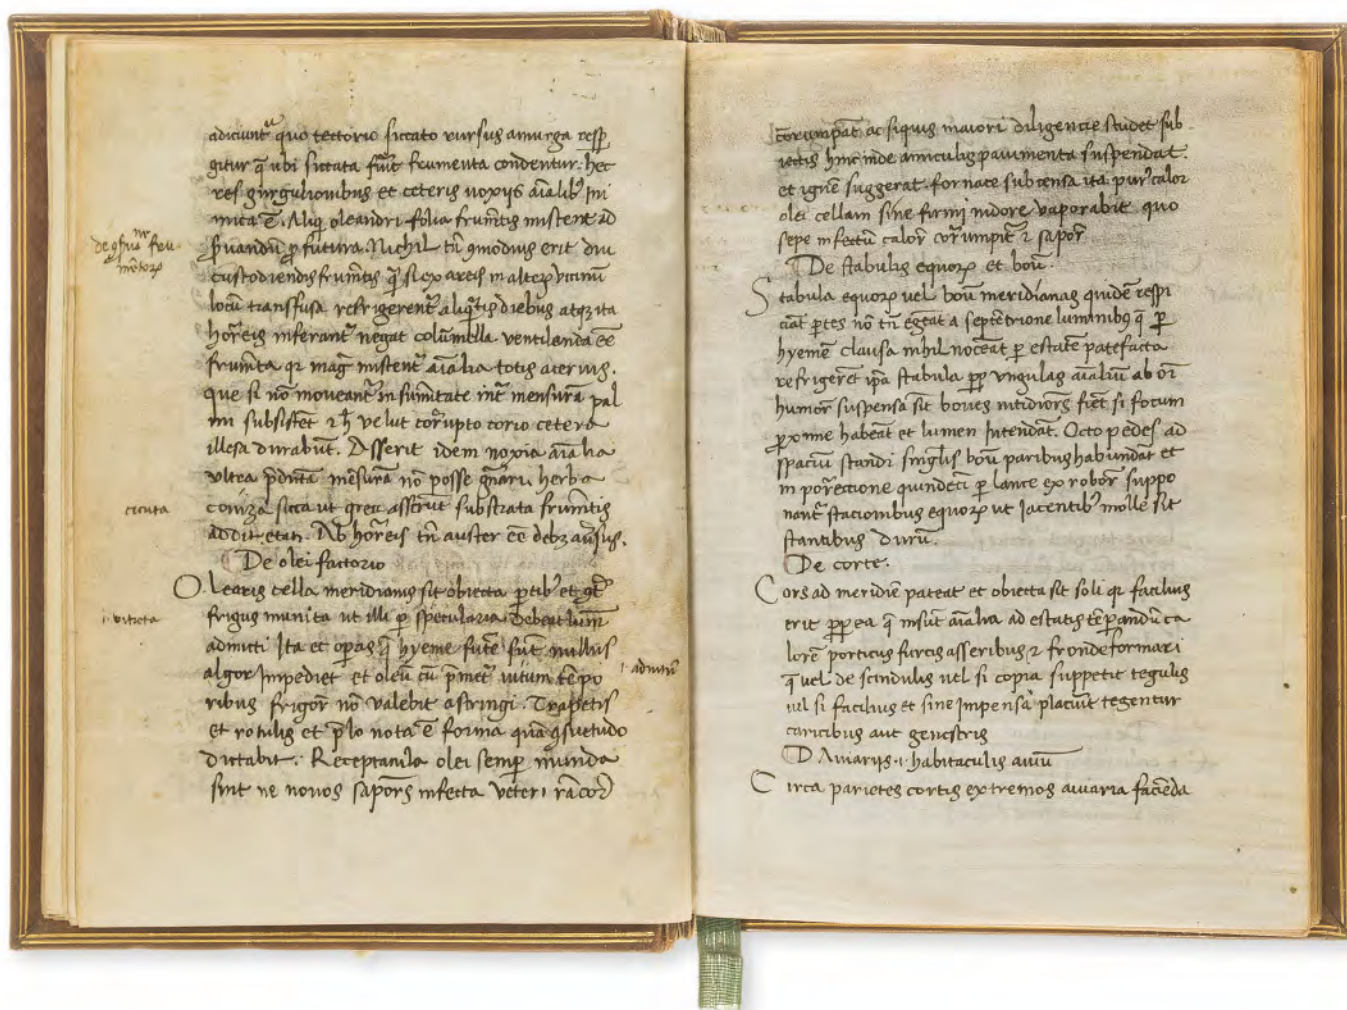 adiciunt͛ quo tectorio siccato rursus amurga resp̱
gitur q̄ ubi siccata fūit frumenta condentur. hec
res gurgulionibus et ceteris noxijs aīalib᷒ Ini
mica ē. Aliq̇ oleandri folia frum̄tis miscent ad
ẜuandū ꝓfutura. Nichil tn̄ ꝯmodius erit diu
custodiendis frum̄tis q̄ si ex areis in alteꝝ vicinū
locū transfusa refrigerent͛ aliq̄tis diebus atqꝫ ita
hor̄eis inferant͛ negat colūmella ventilanda ēē
frum̄ta qꝛ maḡ miscent͛ aīalia totis aceruis.
que si nō moueant͛ in sum̄itate int͛ mensurā pal
mi subsistēt ⁊ h̄ velut cor̄upto corio cetera
illesa durabūt. Asserit idem noxia aīalia
ultra p̄dictā mēsurā nō posse gn̄ari herba
coniza sicca ut greci asserūt substrata frum̄tis
addit etati. Ab hor̄eis tn̄ auster ēē debꝫ au̇sus.
De olei factorio
Olearis cella meridianis sit obiecta ꝑtib᷒ et ꝯt͛
frigus munita ut illi ꝑ specularia debeat lum̄
admitti Ita et oꝑas q̄ hyeme fut̄e sūt nullus
algor Impediet et oleū cū p̄met͛ uitum tēpo
ribus frigor̄ nō valebit astringi. Trapetis
et rotulis et p̄lo nota ē forma quā ꝯsuetudo
dictabit. Receptacula olei semꝑ munda
sint ne nouos sapor̄s infecta veteri rācor̄
de ꝯẜuane fru
m̄toꝝ
cicuta
i. vitreta
cor̄umpāt ac siquis maiori diligencie studet sub
iectis hinc inde aniculis pauimenta suspendat.
et ignē suggerat. fornace subcensa ita pur᷒ calor
olei cellam sine fumi nidore vaporabit quo
sepe infectū calor̄ cor̄umpit͛ ⁊ sapor̄
De stabulis equoꝝ et boū.
Stabula equoꝝ vel boū meridianas quidē respi
ciāt ꝑtes nō tn̄ egeāt a septētrione luminib᷒ q̄ ꝑ
hyemē clausa nihil noceāt ꝑ estatē patefacta
refrigerēt ip̄a stabula ꝓp̱ vngulas aīaliū ab oī
humor̄ suspensa sīt boues nitidior̄s fiēt si focum
ꝓxime habeāt et lumen Intendāt. Octo pedes ad
spaciū standi singlis boū paribus habundāt et
in por̄ectione quindeci ꝑlance ex robor̄ suppo
nant͛ stacionibus equoꝝ ut Iacentib᷒ molle sit
stantibus durū.
De corte.
Cors ad meridiē pateat et obiecta sit soli qꝛ facilius
erit ꝓp̱ ea q̄ insūt aīalia ad estatis tēꝑandū ca
lorē porticus furcis asseribus ⁊ fronde formari
q̄ vel de scindulis uel si copia suppetit tegulis
uel si facilius et sine Impensa placuit tegentur
caricibus aut genestris
D Auiarijs .i. habitaculis auiū
Circa parietes cortis extremos auiaria faciēda